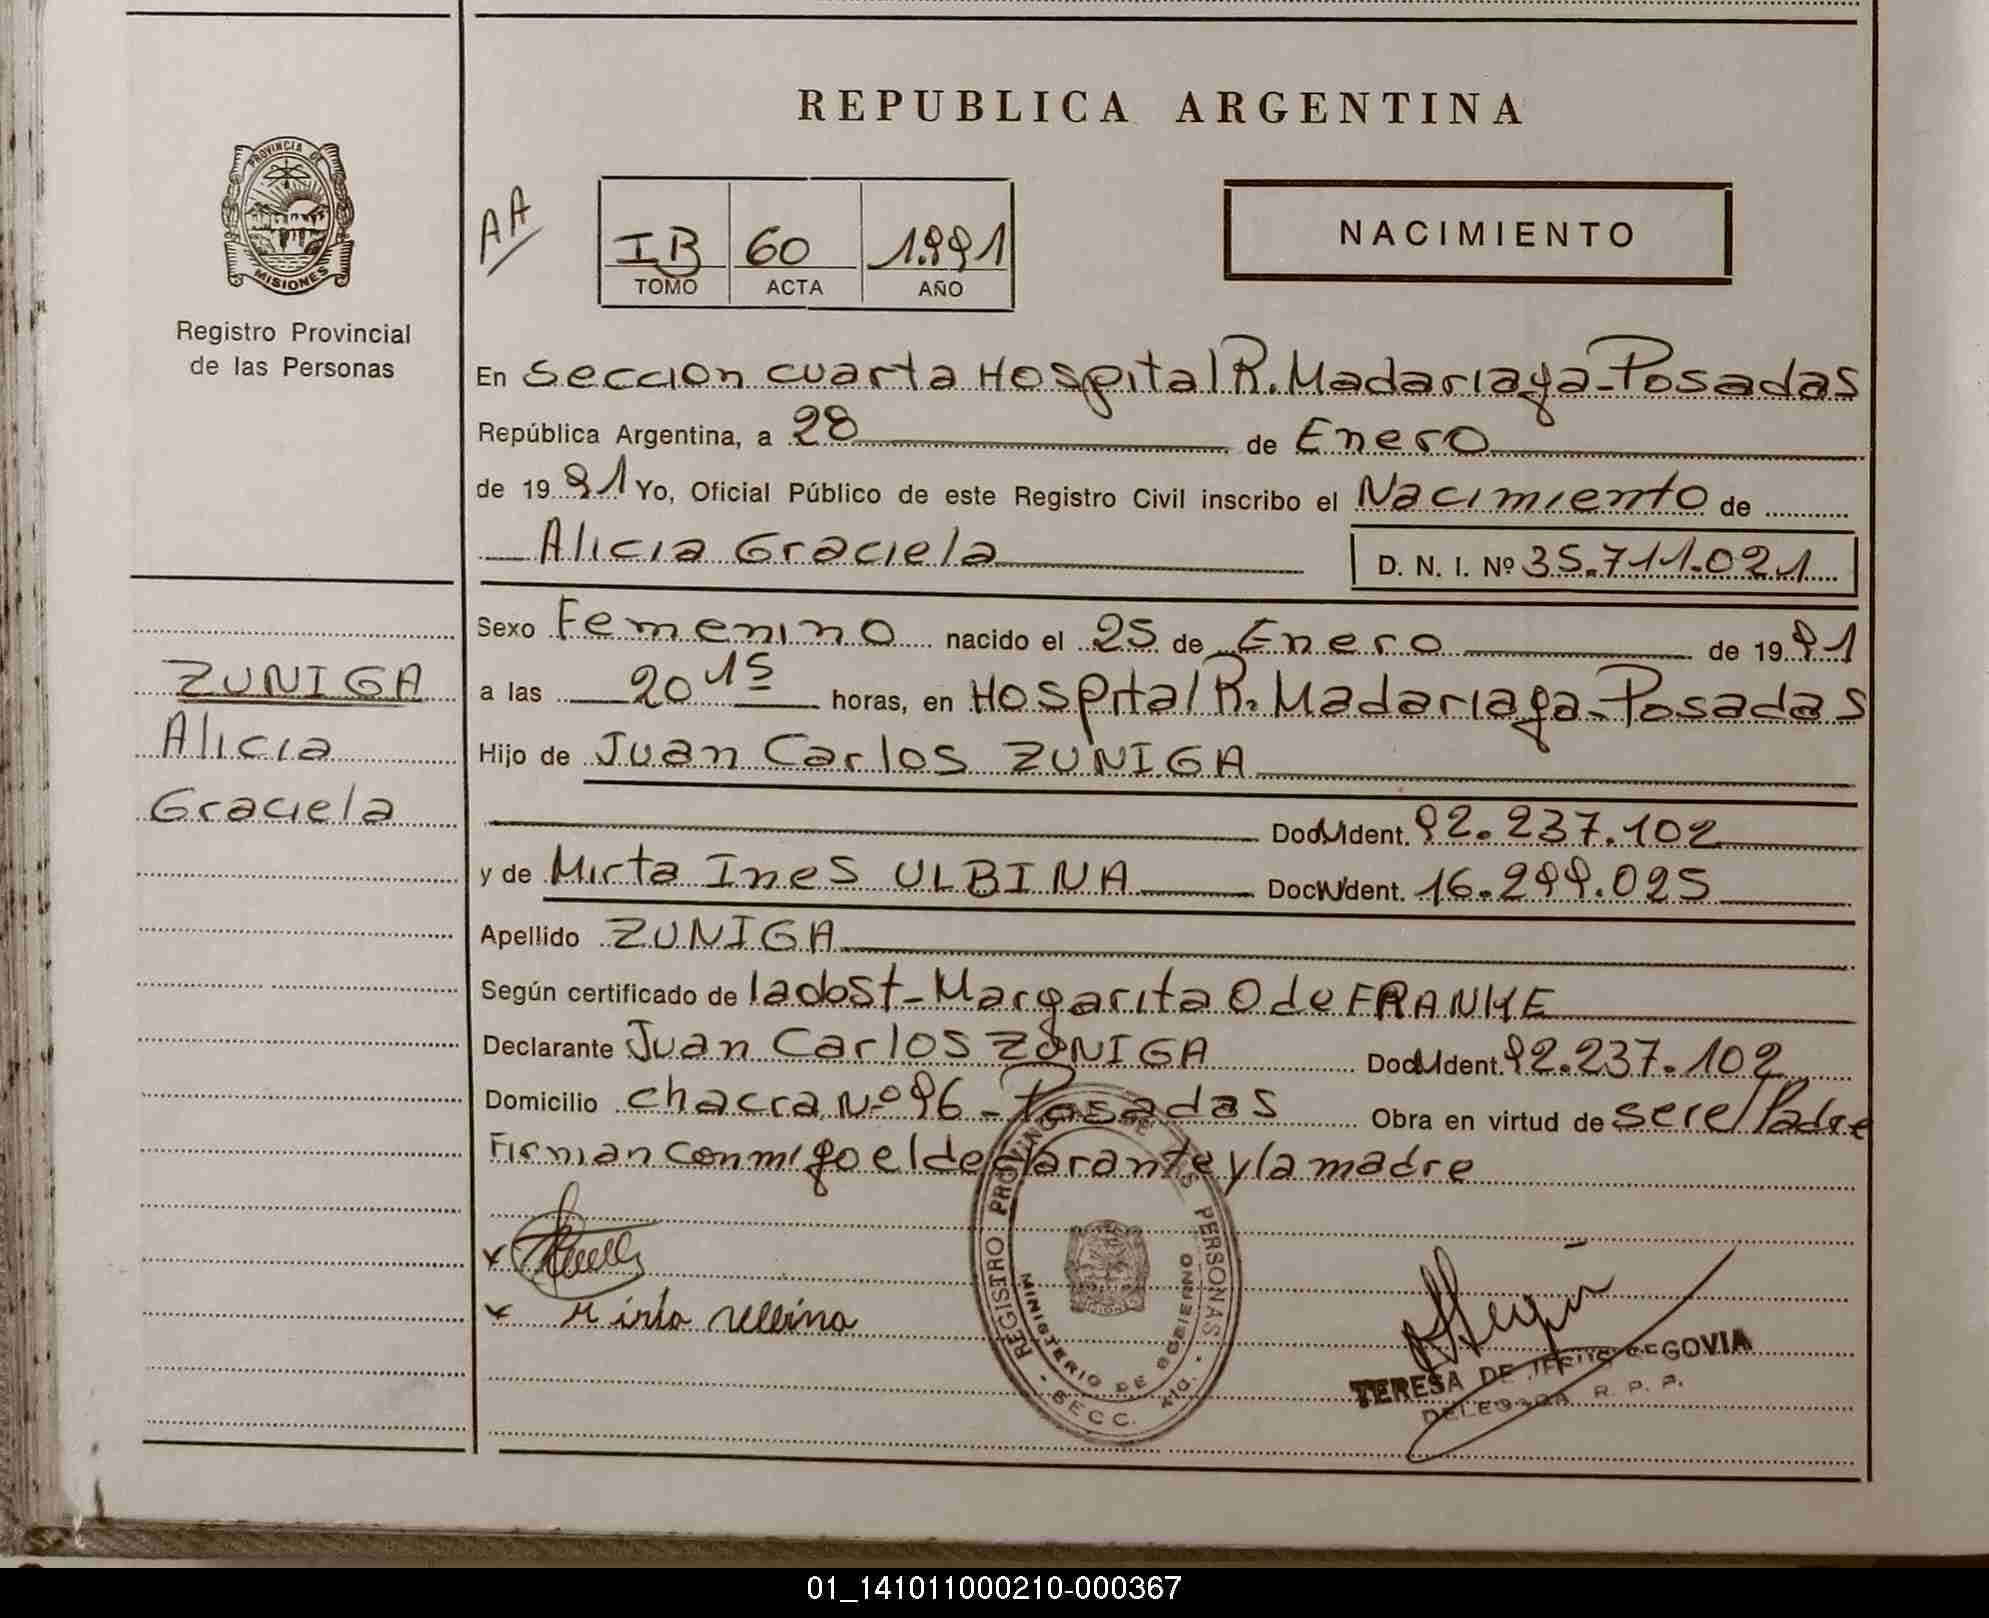 REPUBLICA ARGENTINA
PROVINCIA DE
MISIONES
Registro Provincial
de las Personas
AA
IB 60 1.991
TOMO ACTA AÑO
NACIMIENTO
En Seccion cuarta Hospital R. Madariaga - Posadas
República Argentina, a 28 de Enero
de 1991 Yo, Oficial Público de este Registro Civil inscribo el Nacimiento de
Alicia Graciela
D. N. I. Nº 35.711.021
ZUNIGA
Alicia
Graciela
Sexo Femenino nacido el 25 de Enero de 1991
a las 20 15 horas, en Hospital R. Madariaga - Posadas
Hijo de Juan Carlos ZUNIGA
Doc. Ident. 92.237.102
y de Mirta Ines ULBINA Doc. Ident. 16.299.025
Apellido ZUNIGA
Según certificado de la obst - Margarita O de FRANKE
Declarante Juan Carlos ZUNIGA Doc. Ident. 92.237.102
Domicilio chacra Nº 96 - Posadas Obra en virtud de ser el Padre
Firman conmigo el declarante y la madre
x
x Mirta Ulbina
REGISTRO PROVINCIAL DE LAS PERSONAS
MINISTERIO DE GOBIERNO
SECC. 4ta.
TERESA DE JESUS SEGOVIA
DELEGADA R. P. P.
01_141011000210-000367